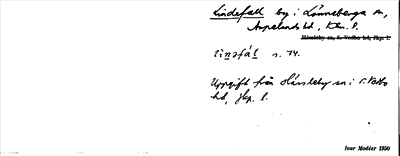 Lindefall by i Lönneberga sn,
Aspelands hd, Klm. l.
Hässleby sn, S. Vedbo hd, Jkp. l.
s. 74.
Uppgift från Hässleby sn i S. Vedbo
hd, Jkp. l.
Ivar Modéer 1950